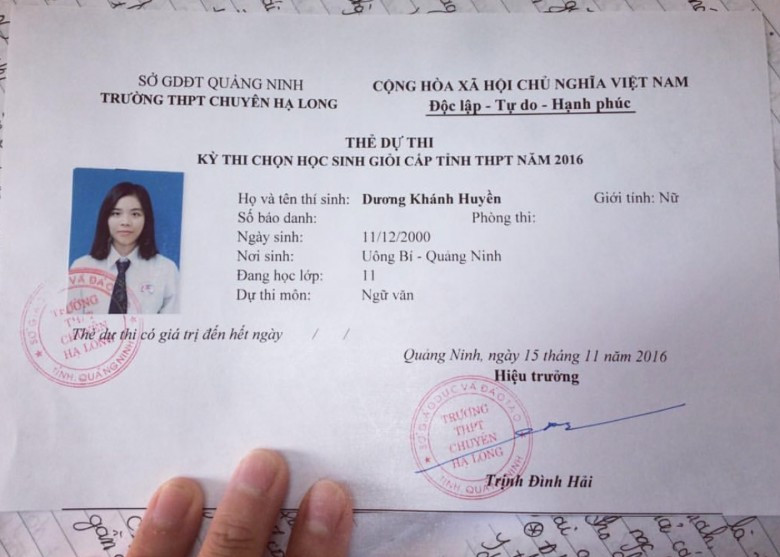 SỞ GDĐT QUẢNG NINH
TRƯỜNG THPT CHUYÊN HẠ LONG
CỘNG HÒA XÃ HỘI CHỦ NGHĨA VIỆT NAM
Độc lập - Tự do - Hạnh phúc
THẺ DỰ THI
KỲ THI CHỌN HỌC SINH GIỎI CẤP TỈNH THPT NĂM 2016
Họ và tên thí sinh: Dương Khánh Huyền Giới tính: Nữ
Số báo danh: Phòng thi:
Ngày sinh: 11/12/2000
Nơi sinh: Uông Bí - Quảng Ninh
Đang học lớp: 11
Dự thi môn: Ngữ văn
Thẻ dự thi có giá trị đến hết ngày / /
TRƯỜNG
THPT
CHUYÊN
HẠ LONG
TỈNH QUẢNG NINH
Quảng Ninh, ngày 15 tháng 11 năm 2016
Hiệu trưởng
SỞ GIÁO DỤC VÀ ĐÀO TẠO
TRƯỜNG
THPT
CHUYÊN
HẠ LONG
TỈNH QUẢNG NINH
Trịnh Đình Hải